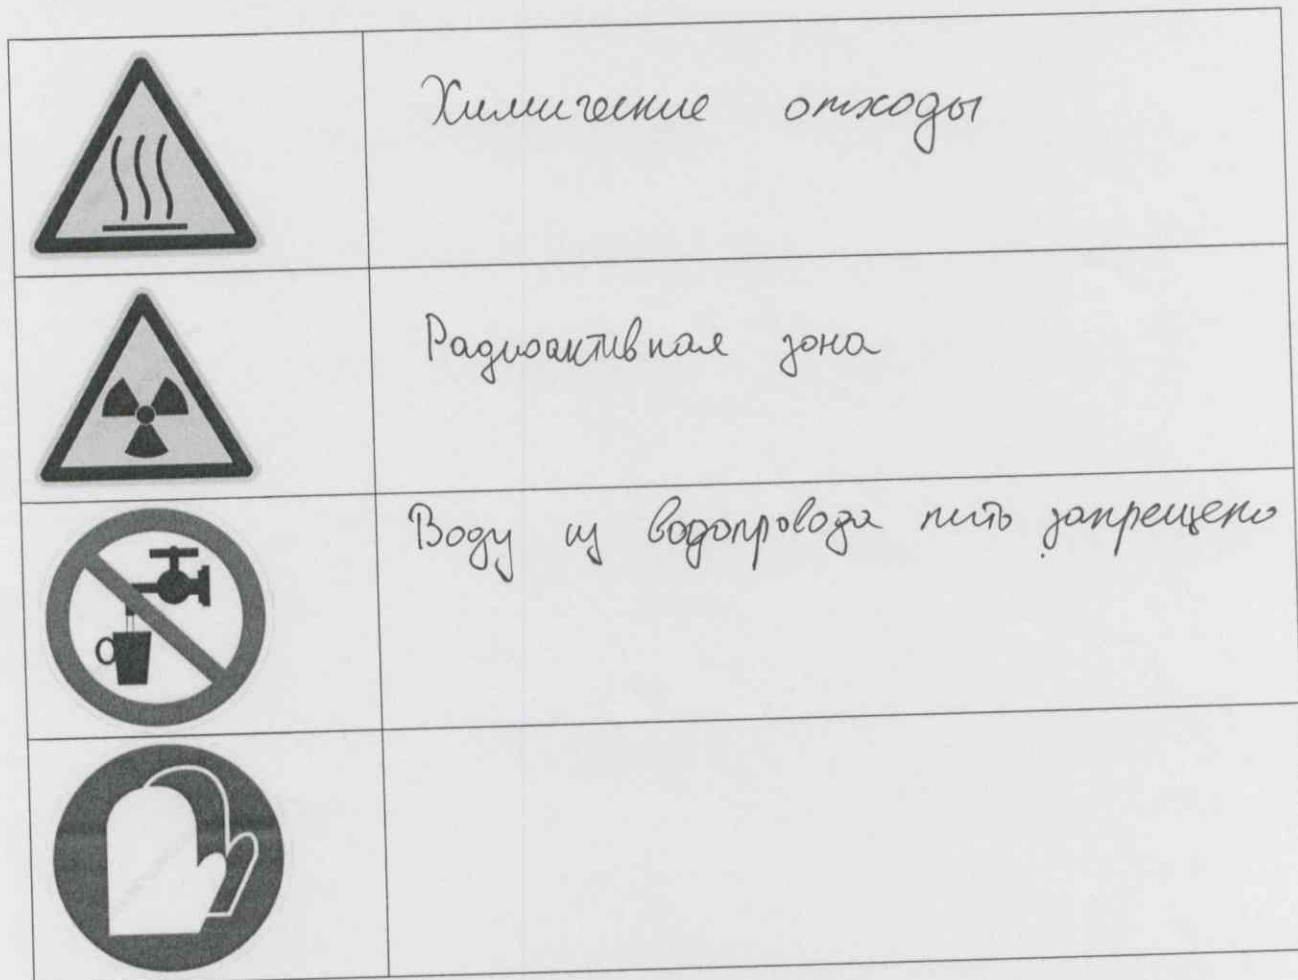 Химические отходы
Радиоактивная зона
Воду из водопровода пить запрещено